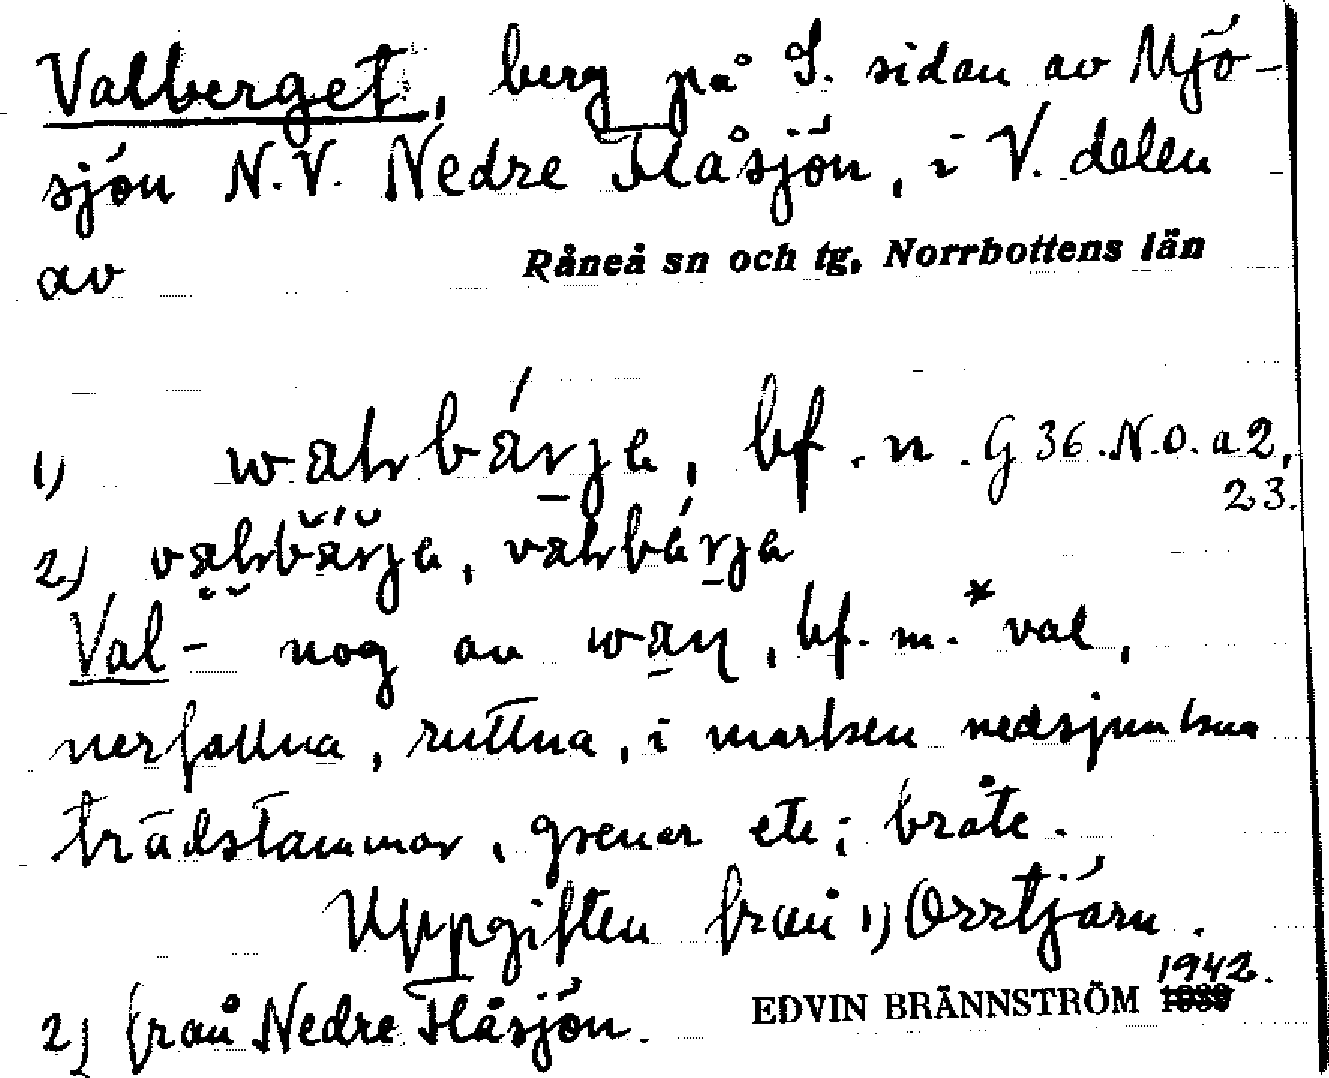 Valberget, berg på S. sidan av Mjö-
sjön N.V. Nedre Flåsjön, i V. delen
av Råneå sn och tg, Norrbottens län
1) bf. n. G 36. N.O. a 2,
23.
2)
Val- nog av bf. m. *val,
nerfallna, ruttna, i marken nedsjunkna
trädstammar, grenar etc; bråte.
Uppgiften från 1) Orrtjärn.
2) från Nedre Flåsjön. EDVIN BRÄNNSTRÖM 1942.